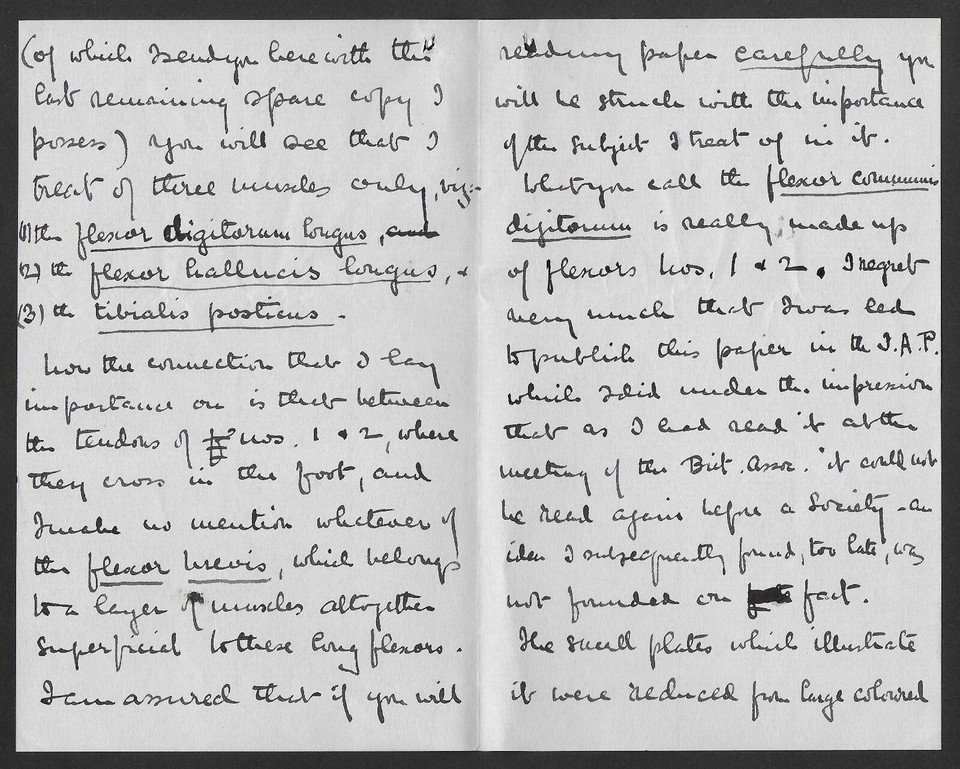 (of which I send you herewith the
last remaining spare copy I
possess) you will see that I
treat of three muscles only, viz:-
(1) the flexor digitorum longus, and
(2) the flexor hallucis longus, &
(3) the tibialis posticus.
Now the connection that I lay
importance on is that between
the tendons of nos. 1 & 2, where
they cross in the foot, and
I make no mention whatever of
the flexor brevis, which belongs
to a layer of muscles altogether
superficial to these long flexors.
I am assured that if you will
read my paper carefully you
will be struck with the importance
of the subject I treat of in it.
What you call the flexor communis
digitorum is really made up
of flexors nos. 1 & 2. I regret
very much that I was led
to publish this paper in the J.A.P.
which I did under the impression
that as I had read it at the
meeting of the Brit. Assoc. it could not
be read again before a Society - an
idea I subsequently found, too late, was
not founded on fact.
The small plates which illustrate
it were reduced from large coloured